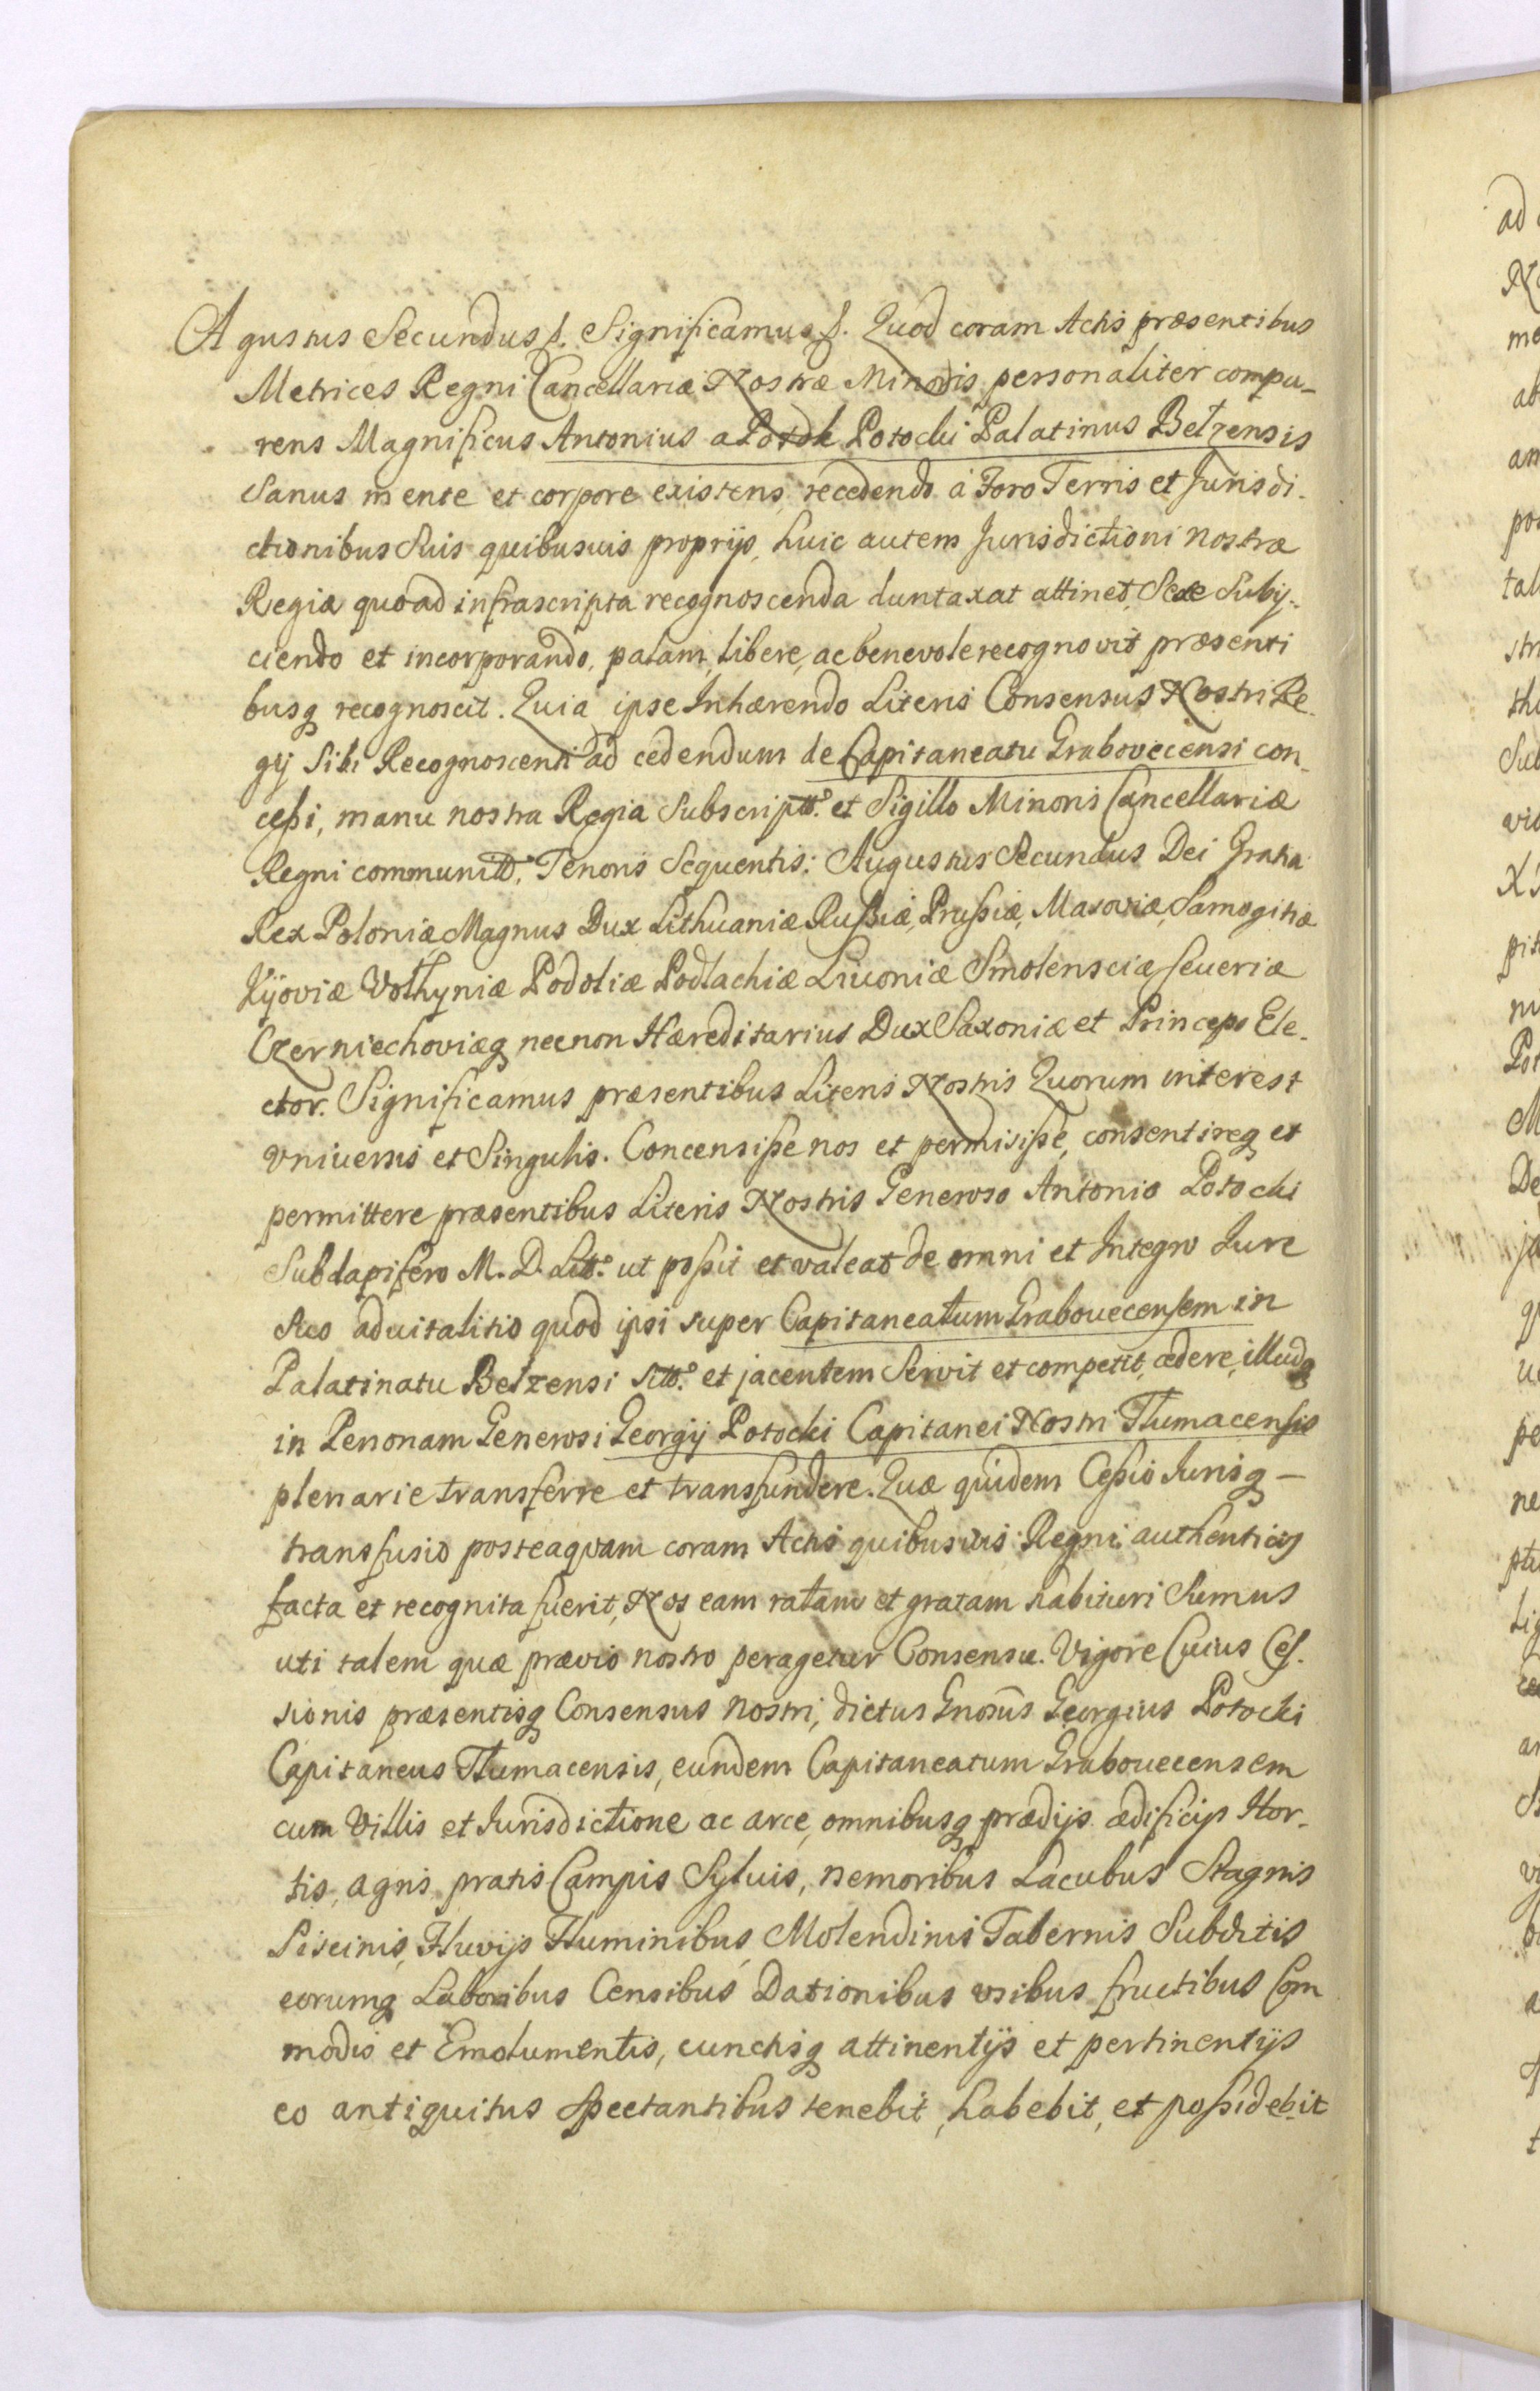 Agustus Secundus ſ. Significamus ſ. Quod coram Actis præsentibus
Metrices Regni Cancellariæ Nostræ Minoris personaliter compa-
rens Magnificus Antonius a Potok Potocki Palatinus Belzensis
Sanus mente et corpore existens, recedendo à Foro Terris et Jurisdi-
ctionibus Suis quibusuis proprijs, huic autem Jurisdictioni nostræ
Regiæ quoad infrascripta recognoscenda duntaxat attinet, Sese Subij-
ciendo et incorporando, palam, libere, ac benevole recognovit præsenti
busq recognoscit. Quia ipse Inhærendo Literis Consensus Nostri Re-
gij Sibi Recognoscenti ad cedendum de Capitaneatu Grabovecensi con-
ceßi, manu nostra Regia Subscriptt.º et Sigillo Minoris Cancellariæ
Regni communitt.º Tenoris Sequentis: Augustus Secundus Dei Gratia
Rex Poloniæ, Magnus Dux Lithuaniæ Rußiæ, Prußiæ, Masoviæ, Samogitiæ
Kijoviæ Volhyniæ Podoliæ Podlachiæ Liuoniæ Smolensciæ Seueriæ
Czerniechoviæq necnon Hæreditarius Dux Saxoniæ et Princeps Ele-
ctor. Significamus præsentibus Literis Nostris Quorum interest
Vniuersis et Singulis. Concensiße nos et permisiße, consentireq et
permittere præsentibus Literis Nostris Generoso Antonio Potocki
Subdapifero M. D. Litt.º ut poßit et valeat de omni et Integro Iure
Suo aduitalitio quod ipsi super Capitaneatum Grabouecensem in
Palatinatu Belzensi Sitt.º et jacentem Servit et competit, cedere, illudq
in Personam Generosi Georgij Potocki Capitanei Nostri Tlumacensis
plenarie transferre et transfundere. Quæ quidem Ceßio Iurisq –
transfusio posteaquam coram Actis quibusuis Regni authenticis
facta et recognita fuerit, Nos eam ratam et gratam habituri Sumus
uti talem quæ prævio nostro peragetur Consensu. Vigore Cuius Ces-
sionis præsentisq Consensus nostri, dictus Gnosus Georgius Potocki
Capitaneus Tlumacensis, eundem Capitaneatum Grabouecensem
cum Villis et Iurisdictione ac arce, omnibusq prædijs ædificijs Hor-
tis, agris, pratis Campis Syluis, nemoribus Lacubus Stagnis
Piscinis, Fluvijs Fluminibus, Molendinis Tabernis Subditis
eorumq Laboribus Censibus Dationibus vsibus fructibus Com
modis et Emolumentis, cunctisq attinentijs et pertinentijs
eo antiquitus Spectantibus tenebit, habebit, et poßidebit